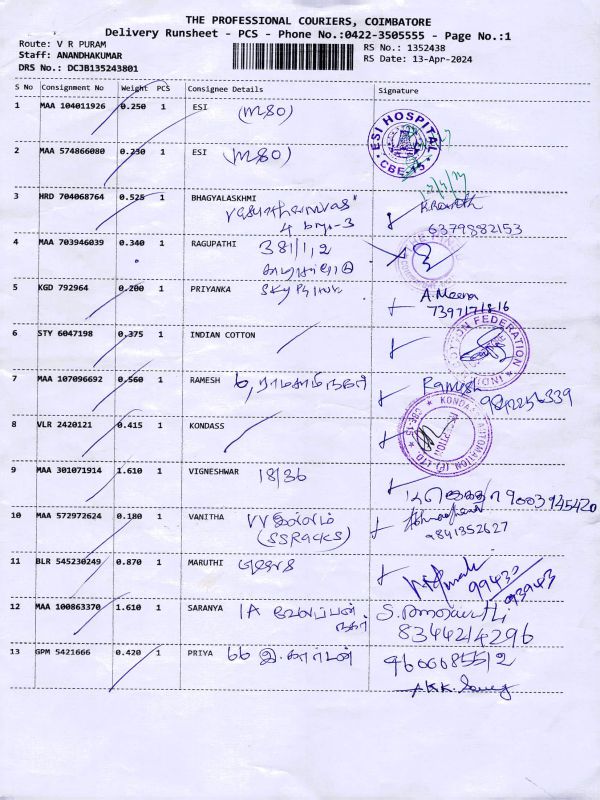 THE PROFESSIONAL COURIERS, COIMBATORE
Delivery Runsheet - PCS - Phone No.:0422-3505555 - Page No.:1
Route: V R PURAM
RS No.: 1352438
Staff: ANANDHAKUMAR
RS Date: 13-Apr-2024
DRS No.: DCJB135243801
S No Consignment No Weight PCS Consignee Details Signature
1 MAA 104011926 0.250 1 ESI (M80)
ESI HOSPITAL
CBE-15
2 MAA 574866080 0.250 1 ESI (M80)
3 HRD 704068764 0.525 1 BHAGYALASKHMI
6379882153
4 MAA 703946039 0.340 1 RAGUPATHI 381/1,2
5 KGD 792964 0.200 1 PRIYANKA A.Meena
6 STY 6047198 0.375 1 INDIAN COTTON
COTTON FEDERATION
7 MAA 107096692 0.560 1 RAMESH 6, ராமசாமி நகர் Ramesh
8 VLR 2420121 0.415 1 KONDASS
9 MAA 301071914 1.610 1 VIGNESHWAR 18/36
9003945420
10 MAA 572972624 0.180 1 VANITHA
(SSRACKS) 9841352627
11 BLR 545230249 0.870 1 MARUTHI
12 MAA 100863370 1.610 1 SARANYA 1A வேலப்பன்
நகர் 8344214296
13 GPM 5421666 0.420 1 PRIYA 66 9600685512